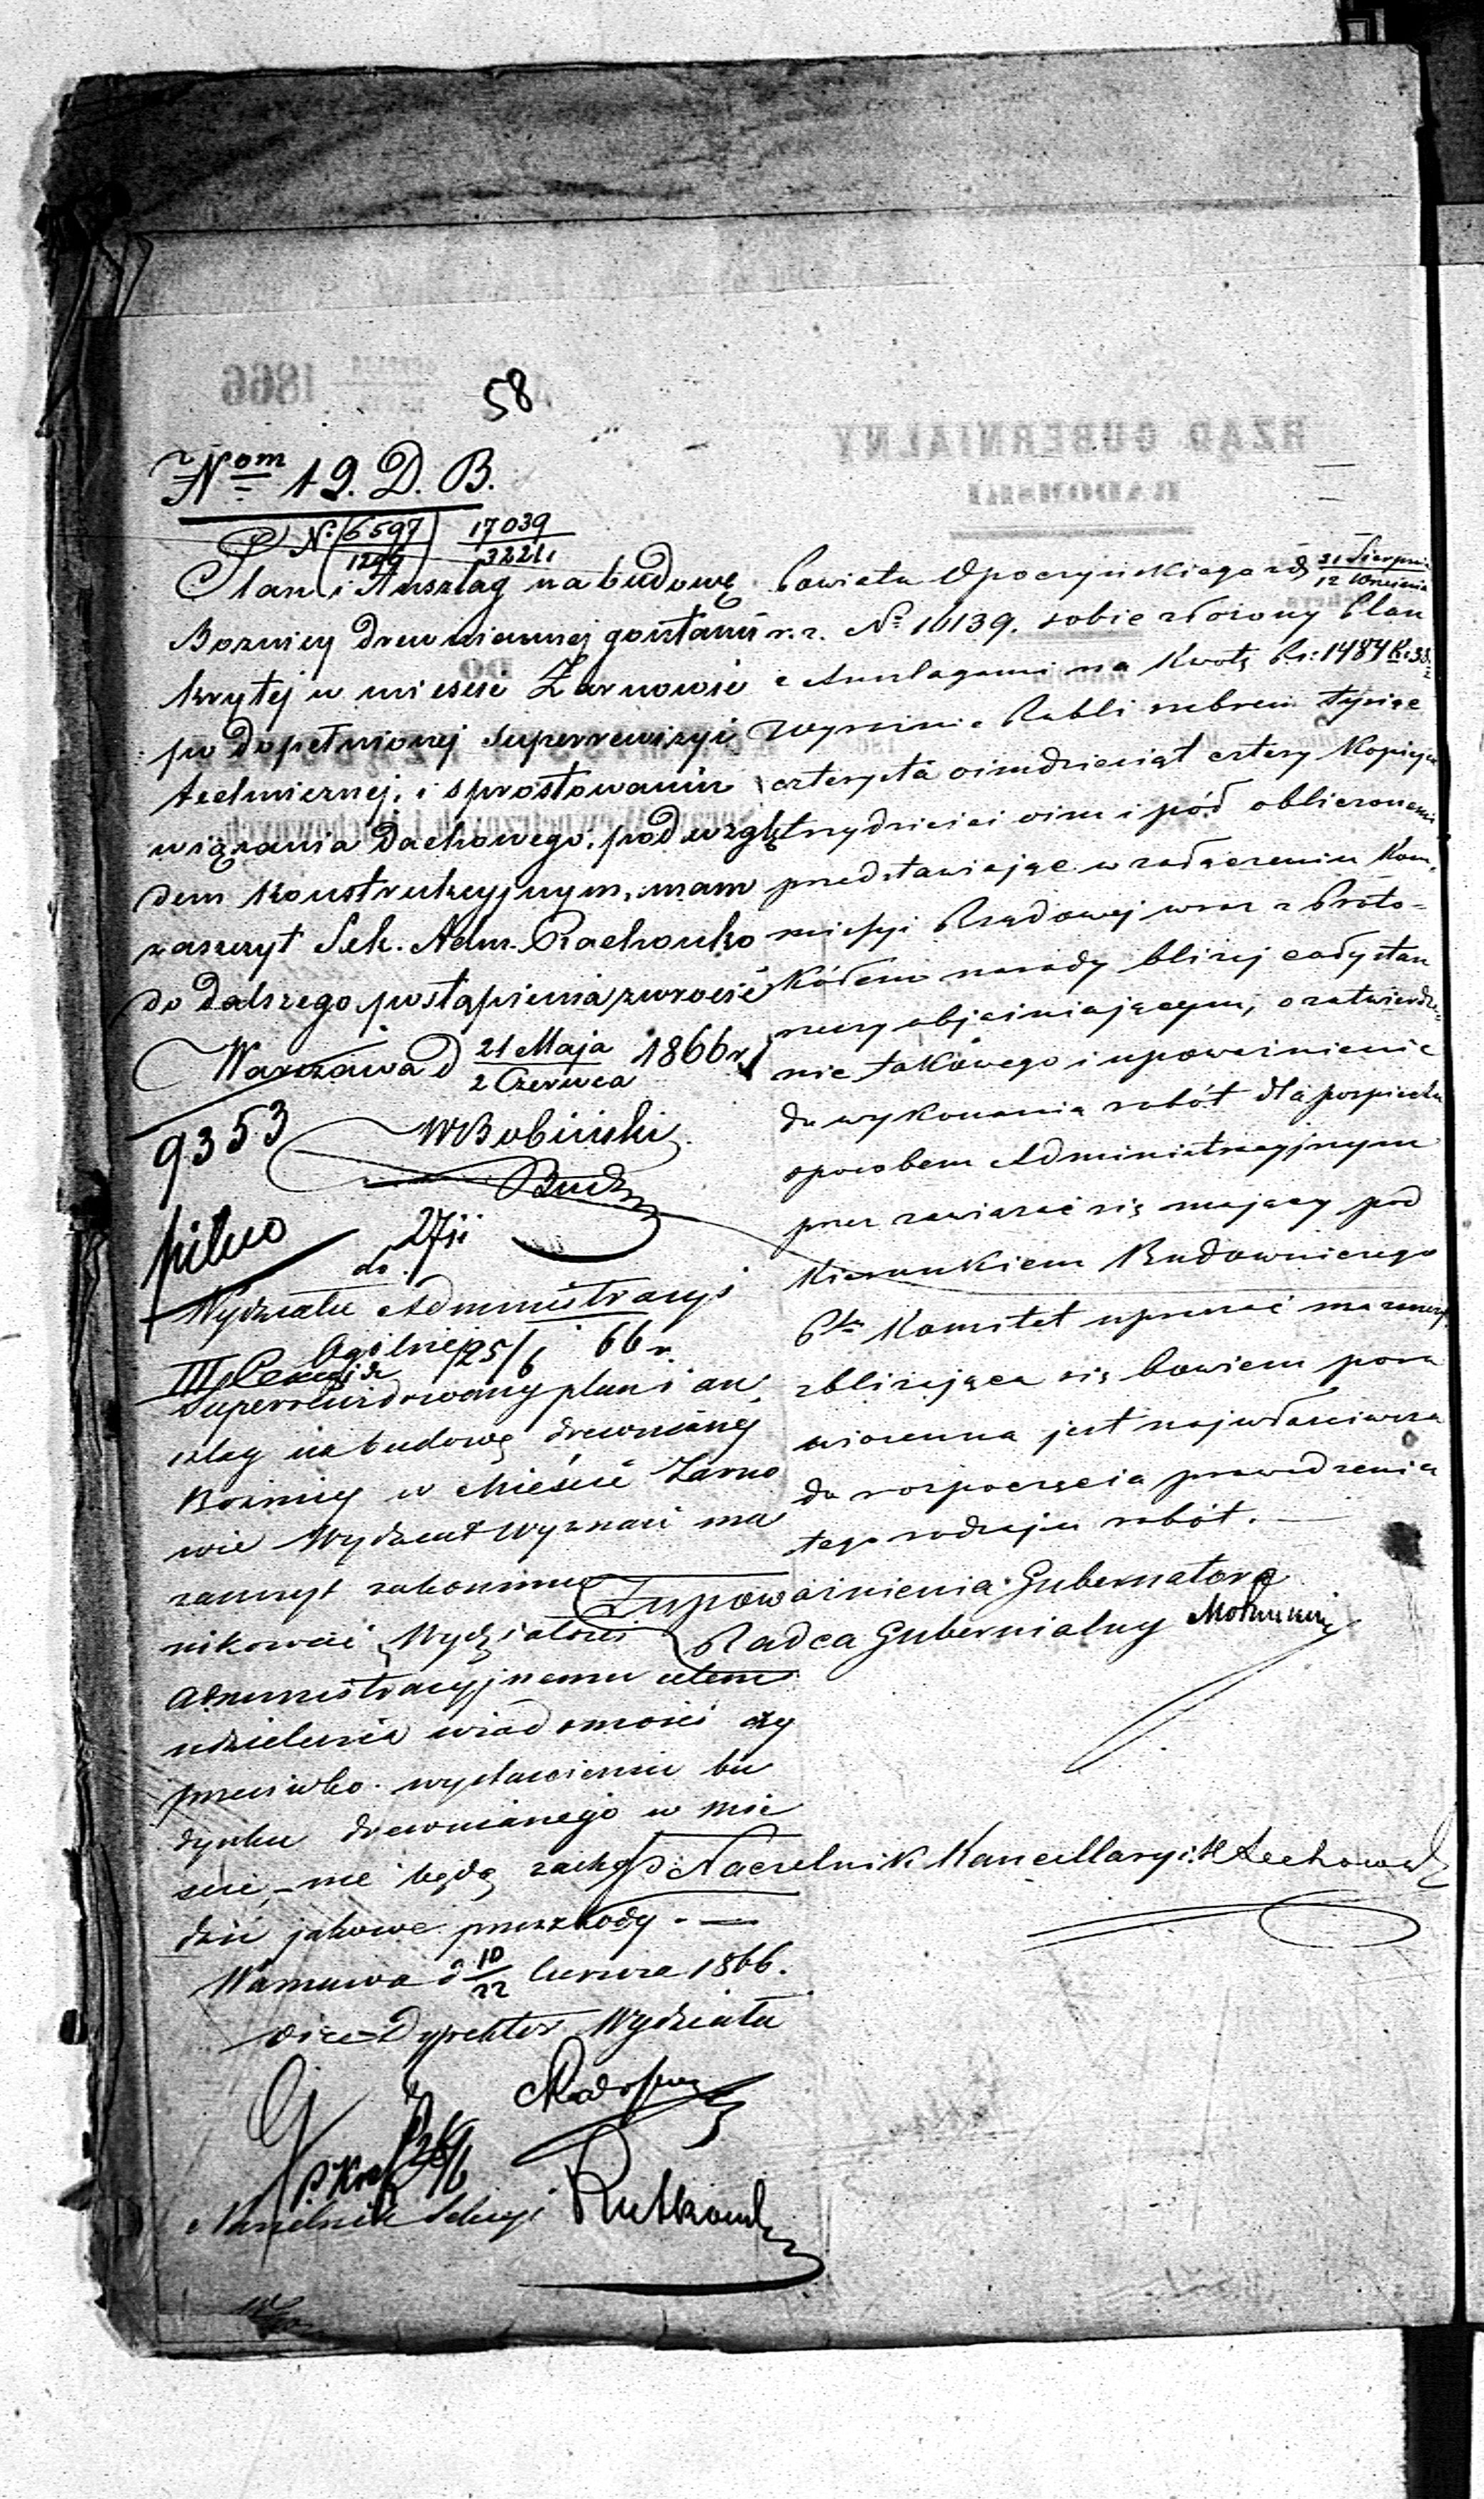 58
Nom 19. D. B.
N: 6597 17039
1296 3221
Plan i Anszlag na budowę
Boznicy drewnianej gontami
krytej w miescie Żarnowie
po dopełnionej superrewizyi
technicznej, i sprostowaniu
wiązania Dachowego, pod wzglę
dem konstrukcyjnym, mam
zaszczyt Sek. Adm.
do dalszego postąpienia zwrocić
Warszawa d 21 Maja / 2 Czerwca 1866 r.
9353
WBobiński
Bud
pilno
do 27
Wydziału Administracyi
Ogólnej 25/6 66 r.
III
Superrewidowany plan i an
szlag na budowę drewnianej
Boznicy w Mieście Żarno
wie Wydział Wyznań ma
zaszczyt zakommu
nikować Wydziałowi
Administracyjnemu celem
udzielenia wiadomości czy
przeciwko wystawieniu bu
dynku drewnianego w mie
scie, – nie będą zacho
dzić jakowe przeszkody. —
Warszawa d 10/22 Czerwca 1866.
Vice-Dyrektor Wydziału
Naczelnik Sekcyi Rutkowski
Powiatu Opoczyńskiego z d 31 Sierpnia / 12 Września
r. z. No 10139. sobie złożony Plan
z Anszlagami na kwotę Rs: 1484 K: 38 ½
wyraźnie Rubli srebrem tysiąc
czterysta ośmdziesiąt cztery kopiejek
trzydzieści ośm i pół obliczonemi
przedstawiając w załączeniu Kom-
missyi Rządowej wraz z Proto-
kółem narady bliżej cały stan
rzeczy objaśniającym, o zatwierdze-
nie takowego i upoważnienie
do wykonania robót dla pospiechu
sposobem Administracyjnym
przez zawiązać się mający pod
kierunkiem Budowniczego
Ptu Komitet upraszać ma zaszczyt
zbliżająca się bowiem pora
wiosenna jest najwłaściwsza
do rozpoczęcia prowadzenia
tego rodzaju robót. —
Z upoważnienia Gubernatora
Radca Gubernialny
Naczelnik Kancellaryi